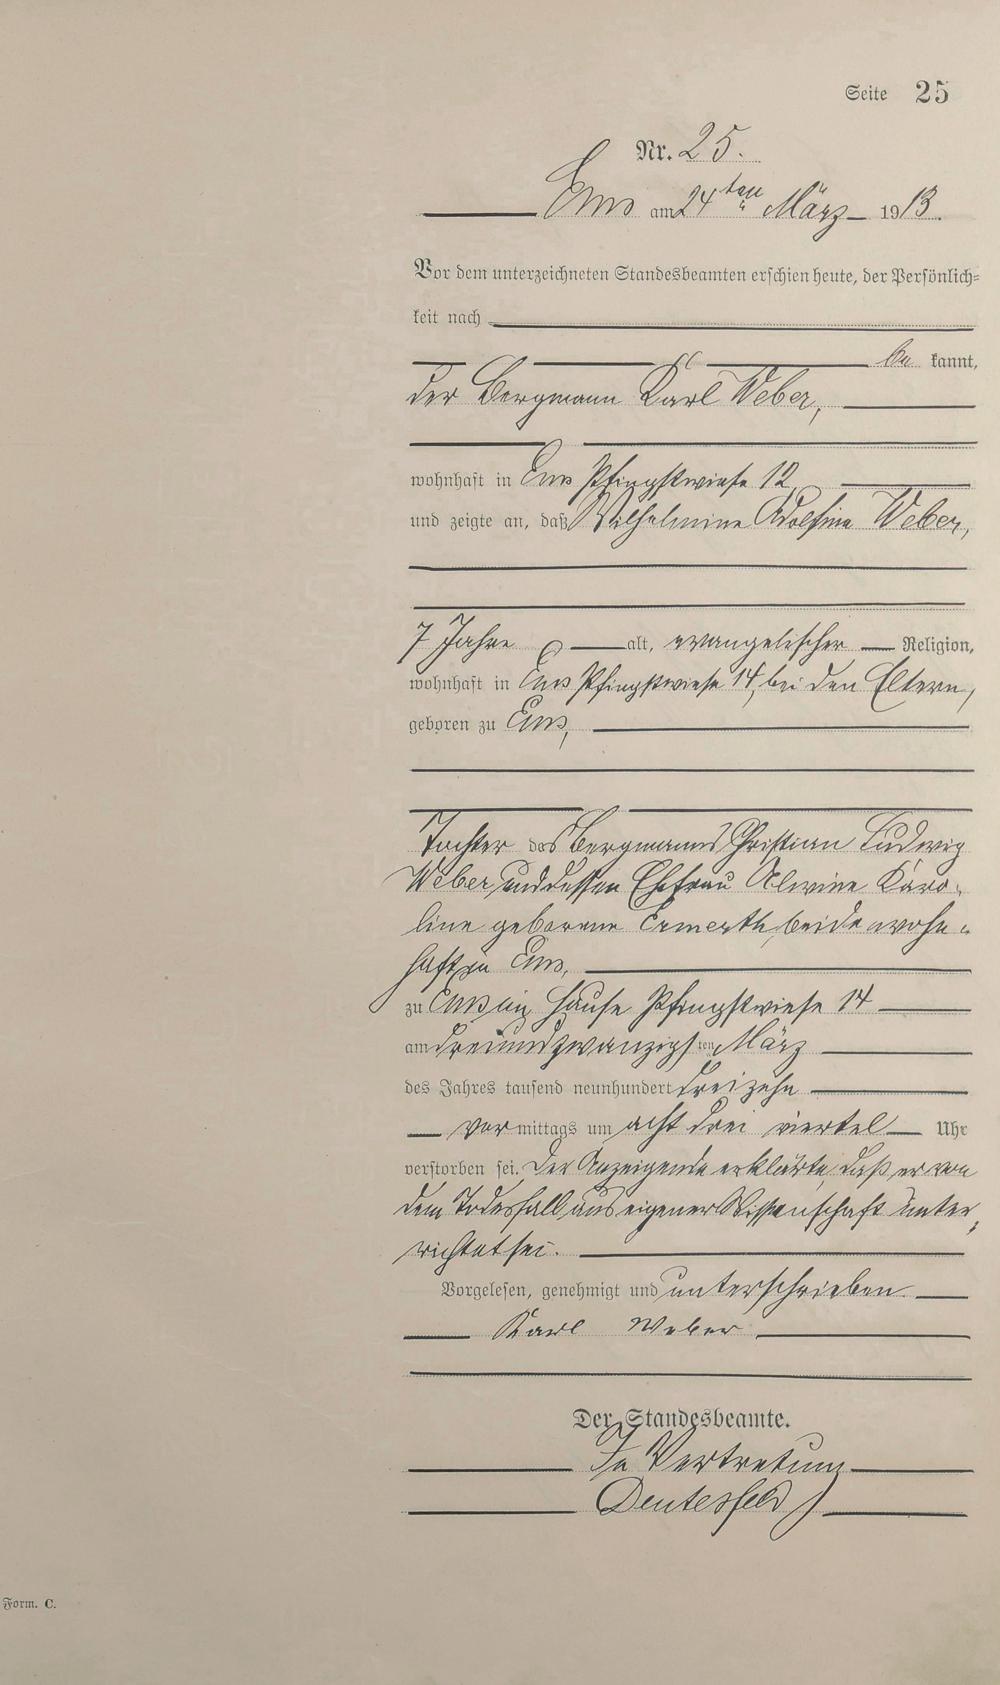 Seite 25
Nr. 25.
Ems am 24ten März 1913.
Vor dem unterzeichneten Standesbeamten erschien heute, der Persönlich-
keit nach
be kannt,
der Bergmann Karl Weber,
wohnhaft in Ems Pfingstwiese 12
und zeigte an, daß Wilhelmine Adolfine Weber,
7 Jahre alt, evangelischer Religion,
wohnhaft in Ems Pfingstwiese 14, bei den Eltern,
geboren zu Ems,
Tochter des Bergmanns Christian Ludwig
Weber und dessen Ehefrau Alwine Karo-
line geborene Ermerth, beide wohn-
haft zu Ems,
zu Ems im Hause Pfingstwiese 14
am dreiundzwanzigsten März
des Jahres tausend neunhundert dreizehn
vor mittags um acht drei viertel Uhr
verstorben sei. Der Anzeigende erklärte, daß er von
dem Todesfall aus eigener Wissenschaft unter-
richtet sei.
Vorgelesen, genehmigt und unterschrieben
Karl Weber
Der Standesbeamte.
In Vertretung
Form. C.